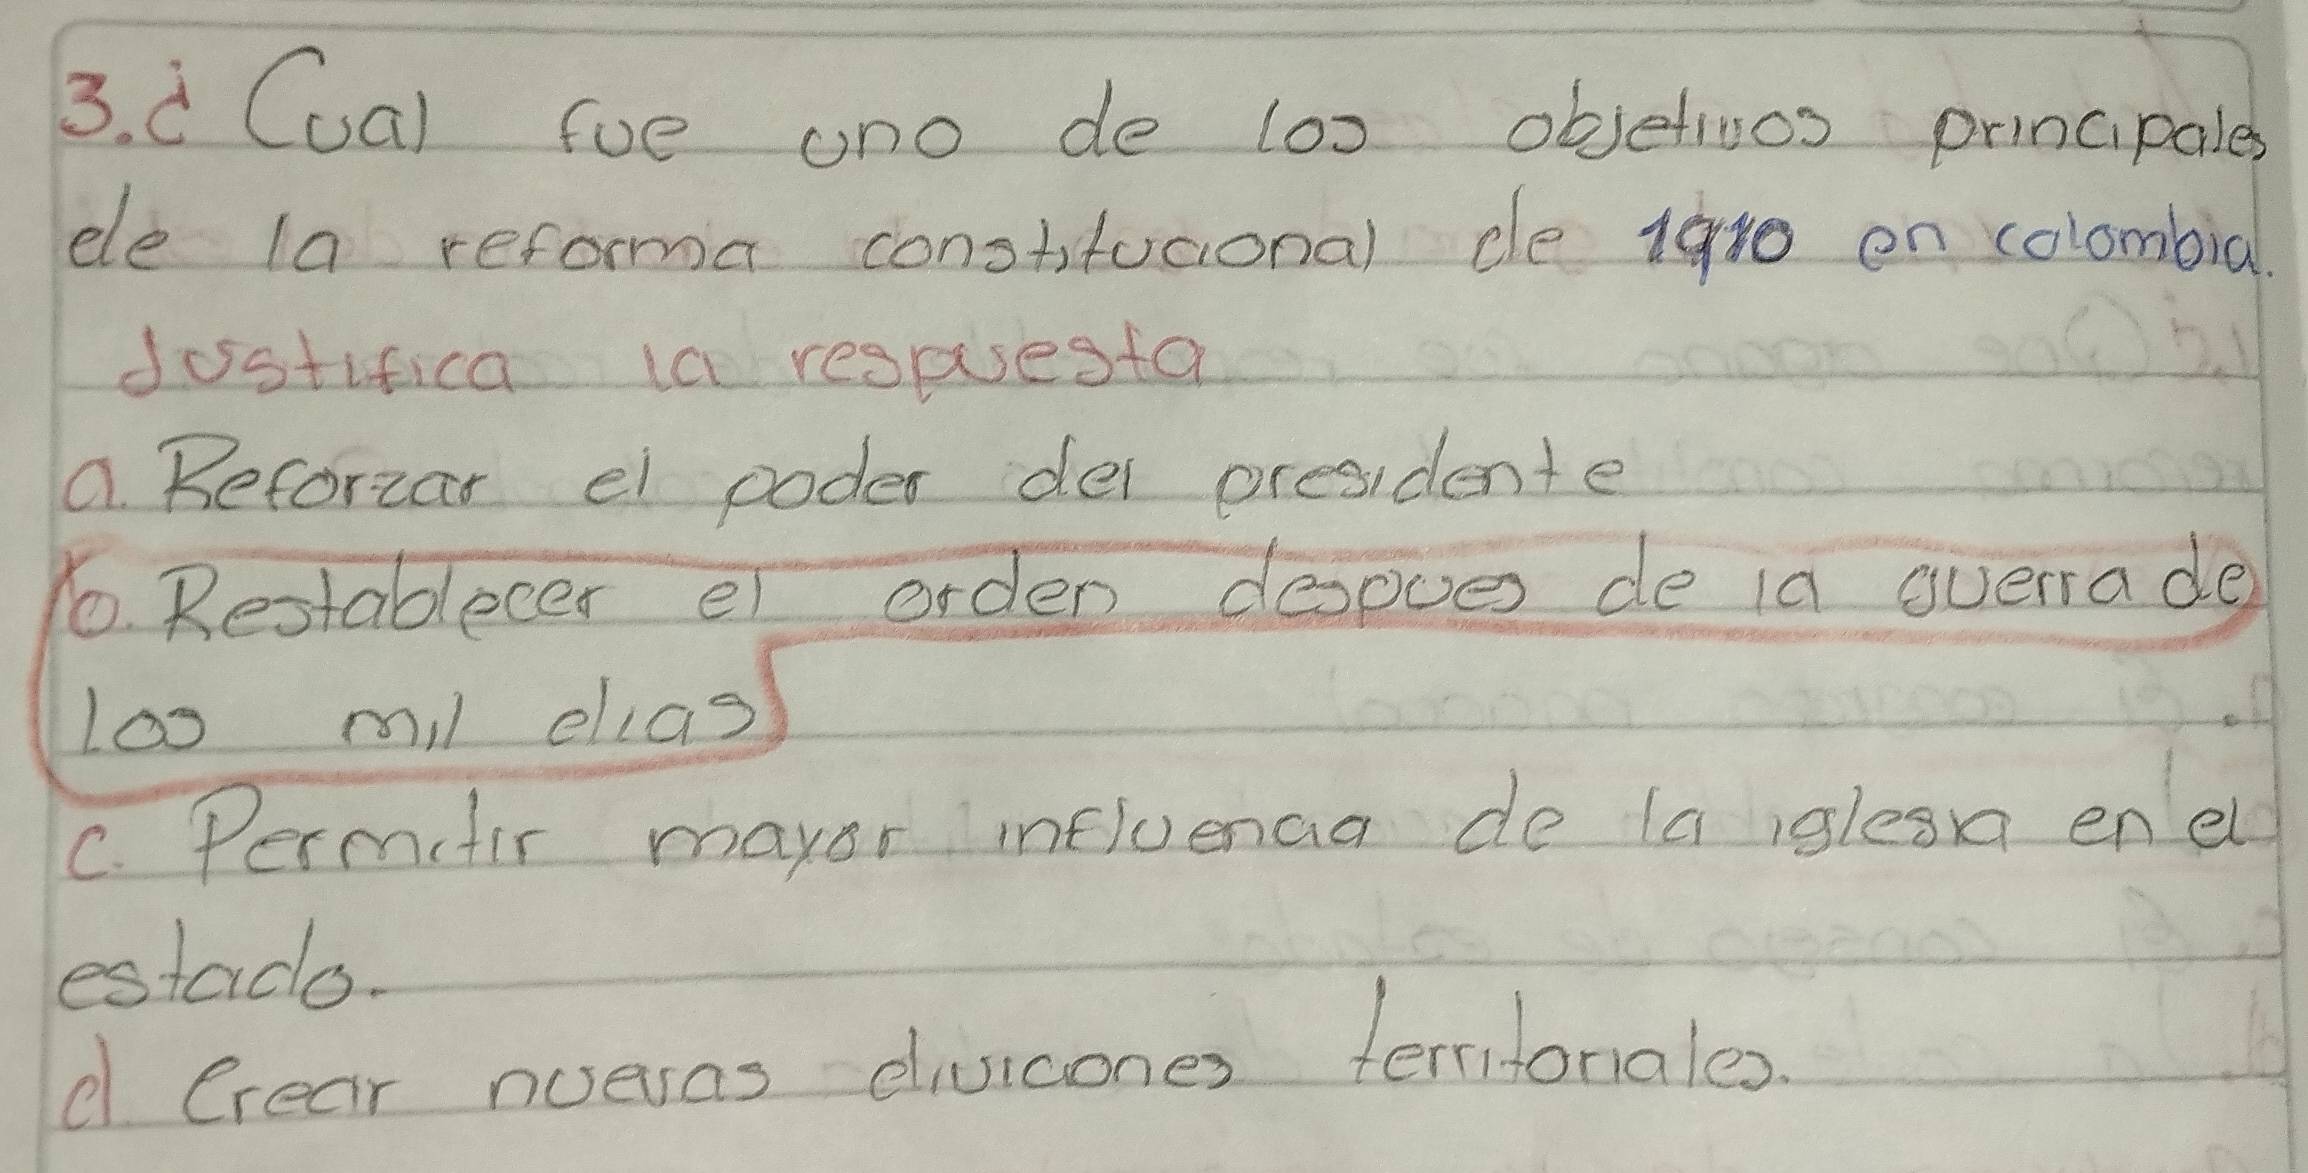 3. ¿Cual fue uno de los objetivos principales
de la reforma constitucional de 1910 en colombia.
Justifica la respuesta
a. Reforzar el poder del presidente
b. Restablecer el orden despues de la guerra de
los mil dias
c. Permitir mayor influencia de la iglesia en el
estado.
d. Crear nuevas diviciones territoriales.